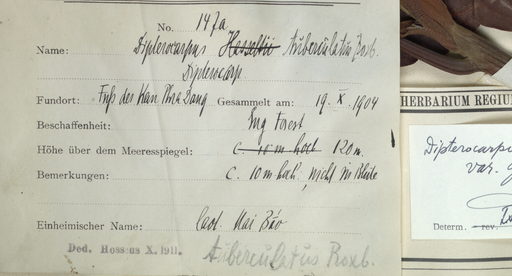 No. 147a
Name: Dipterocarpus Hosseltii Tuberculatus Roxb.
Dipterocarp.
Fundort: Fuß des Kau Phra Dang Gesammelt am: 19. X. 1904
Beschaffenheit: Eng Forest
Höhe über dem Meeresspiegel: c. 10 m hoch 120 m.
Bemerkungen: c. 10 m hoch, nicht in Blüte
Einheimischer Name: Mai
Ded. Hosseus X. 1911.
Tuberculatus Roxb.
HERBARIUM REGIU
Dipterocarpu
var.
Determ. rev.